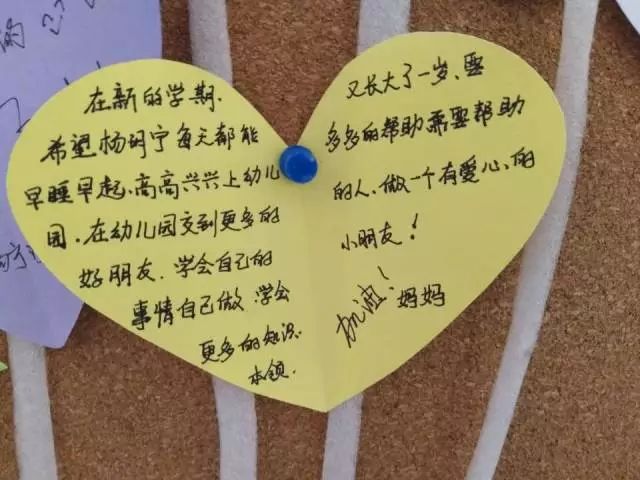 在新的学期.
希望杨明宁每天都能
早睡早起、高高兴兴上幼儿
园.在幼儿园交到更多的
好朋友.学会自己的
事情自己做.学会
更多的知识.
本领.
又长大了一岁、要
多多的帮助需要帮助
的人.做一个有爱心的
小朋友！
加油！妈妈
的